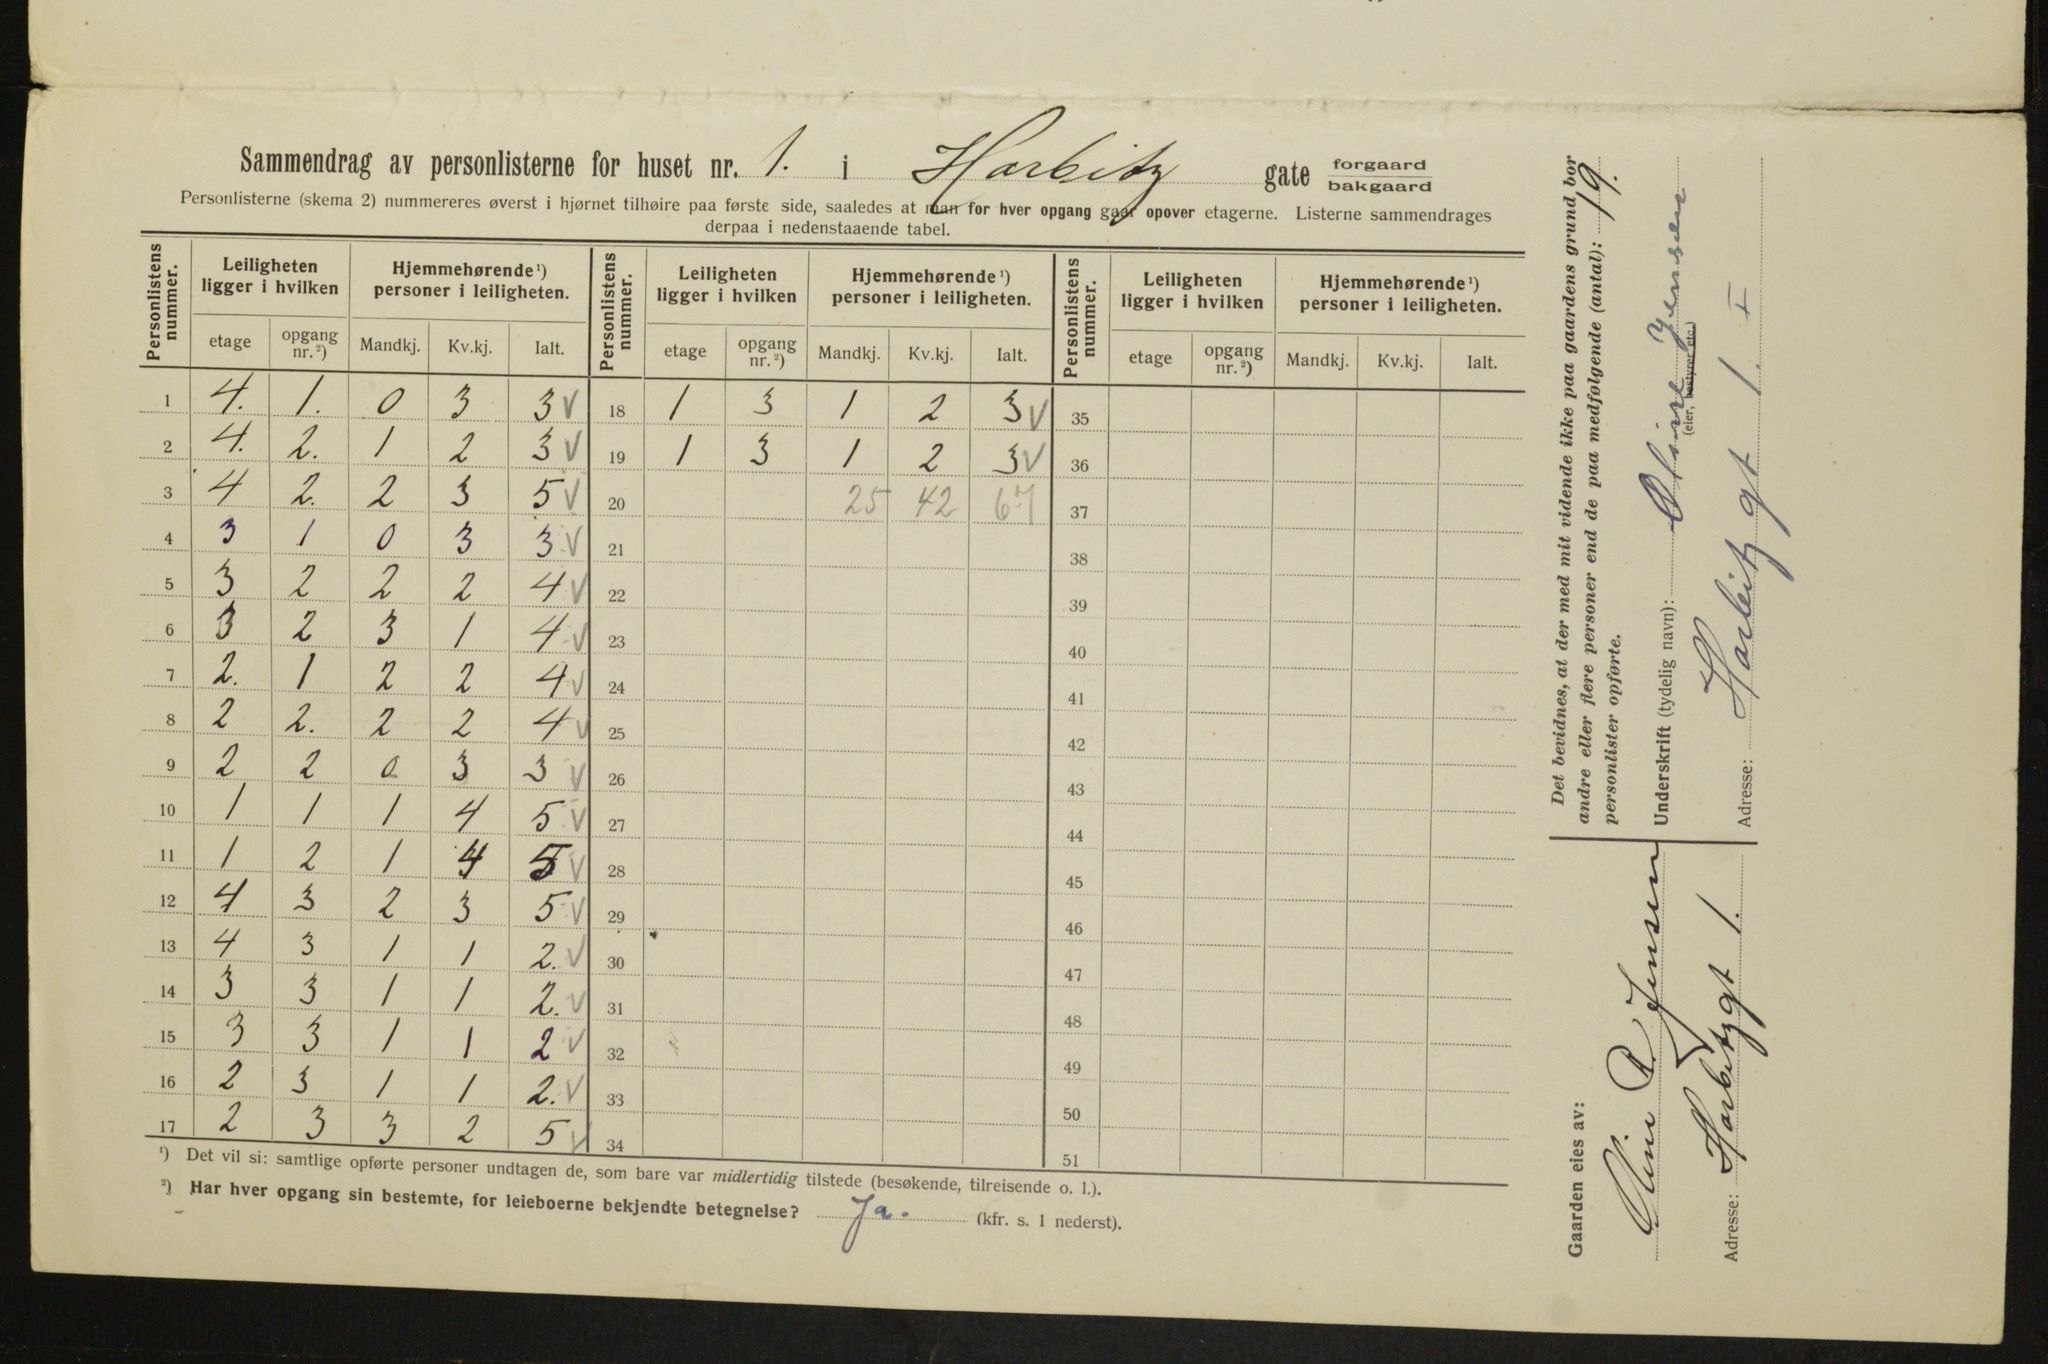 Sammendrag av personlisterne for huset nr. 1. i Harbitz gate forgaard bakgaard
Personlisterne (skema 2) nummereres øverst i hjørnet tilhøire paa første side, saaledes at man for hver opgang gaar opover etagerne. Listerne sammendrages
derpaa i nedenstaaende tabel.
Personlistens nummer. Leiligheten ligger i hvilken Hjemmehørende ¹) personer i leiligheten. Personlistens nummer. Leiligheten ligger i hvilken Hjemmehørende ¹) personer i leiligheten. Personlistens nummer. Leiligheten ligger i hvilken Hjemmehørende ¹) personer i leiligheten.
etage opgang nr. ²) Mandkj. Kv.kj. Ialt. etage opgang nr. ²) Mandkj. Kv.kj. Ialt. etage opgang nr. ²) Mandkj. Kv.kj. Ialt.
1 4. 1. 0 3 3 V 18 1 3 1 2 3 V 35
2 4. 2. 1 2 3 V 19 1 3 1 2 3 V 36
3 4 2. 2 3 5 V 20 25 42 67 37
4 3 1 0 3 3 V 21 38
5 3 2 2 2 4 V 22 39
6 3 2 3 1 4 V 23 40
7 2. 1 2 2 4 V 24 41
8 2 2. 2 2 4 V 25 42
9 2 2 0 3 3 V 26 43
10 1 1 1 4 5 V 27 44
11 1 2 1 4 5 V 28 45
12 4 3 2 3 5 V 29 46
13 4 3 1 1 2. V 30 47
14 3 3 1 1 2. V 31 48
15 3 3 1 1 2 V 32 49
16 2 3 1 1 2. V 33 50
17 2 3 3 2 5 V 34 51
¹) Det vil si: samtlige opførte personer undtagen de, som bare var midlertidig tilstede (besøkende, tilreisende o. l.).
²) Har hver opgang sin bestemte, for leieboerne bekjendte betegnelse? Ja. (kfr. s. 1 nederst).
Det bevidnes, at der med mit vidende ikke paa gaardens grund bor
andre eller flere personer end de paa medfølgende (antal): 19.
personlister opførte.
Underskrift (tydelig navn): Oline Jensen
(eier, bestyrer etc.)
Adresse: Harbitz gt 1. I
Gaarden eies av:
Oline R Jensen
Adresse: Harbitzgt 1.